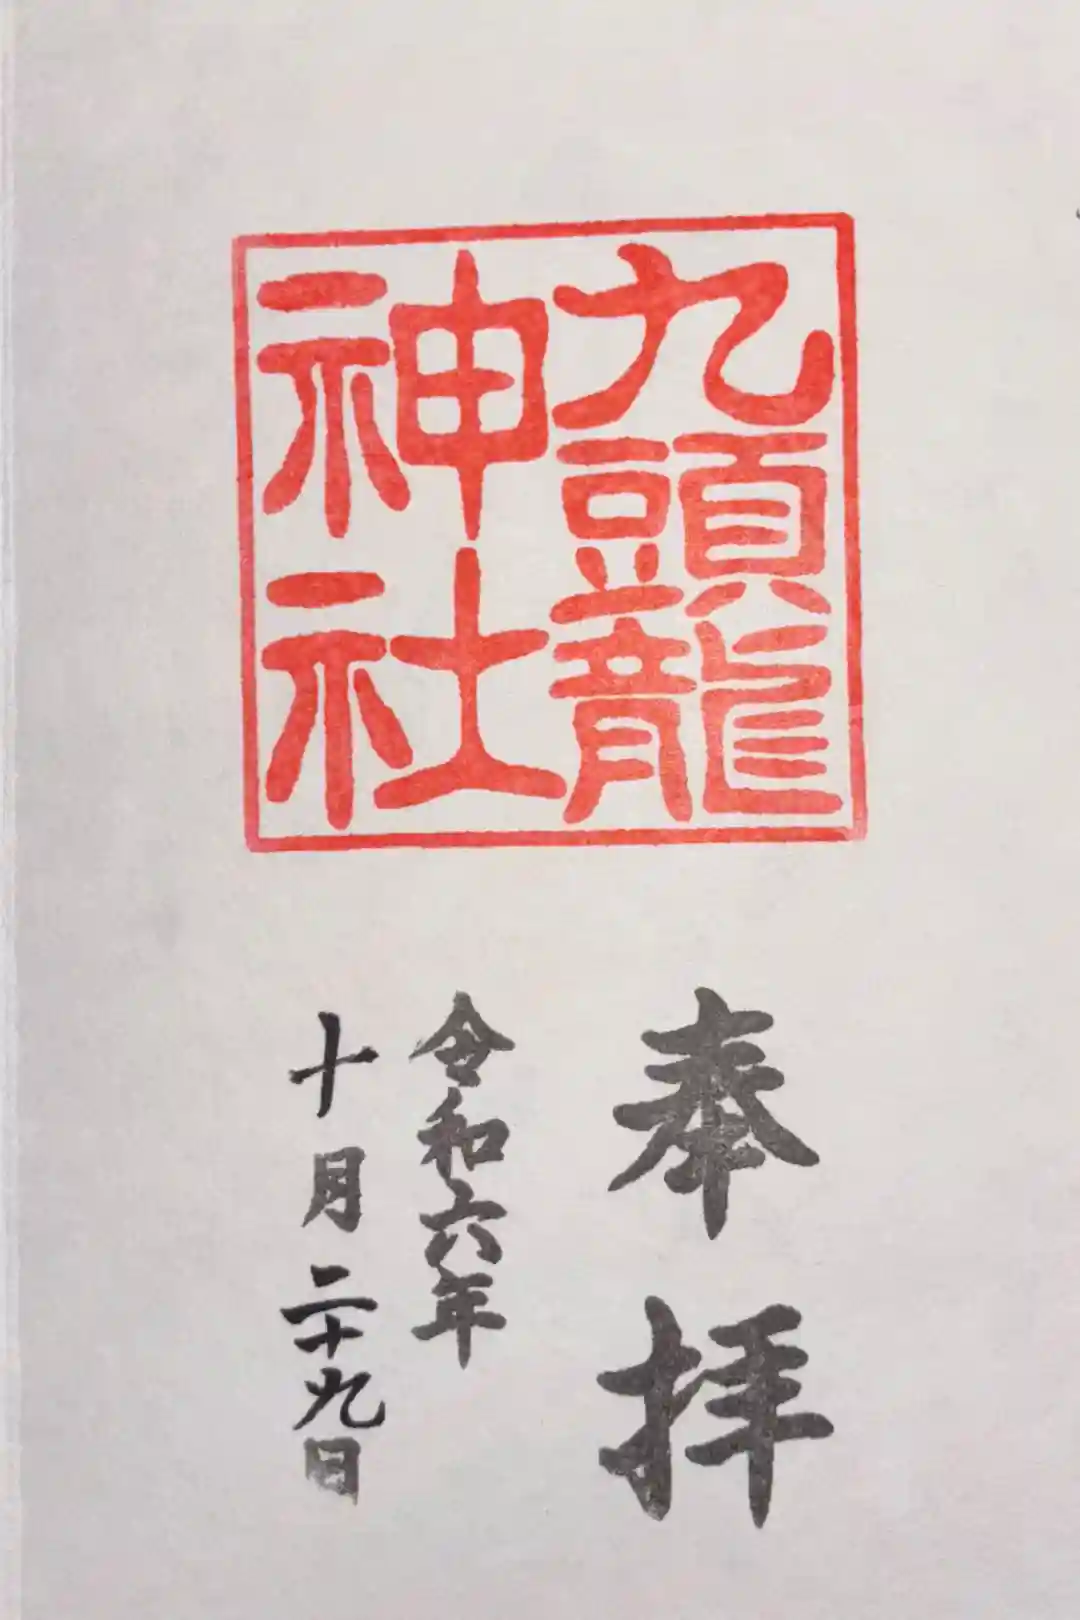 九頭龍
神社
奉拝
令和六年
十月二十九日